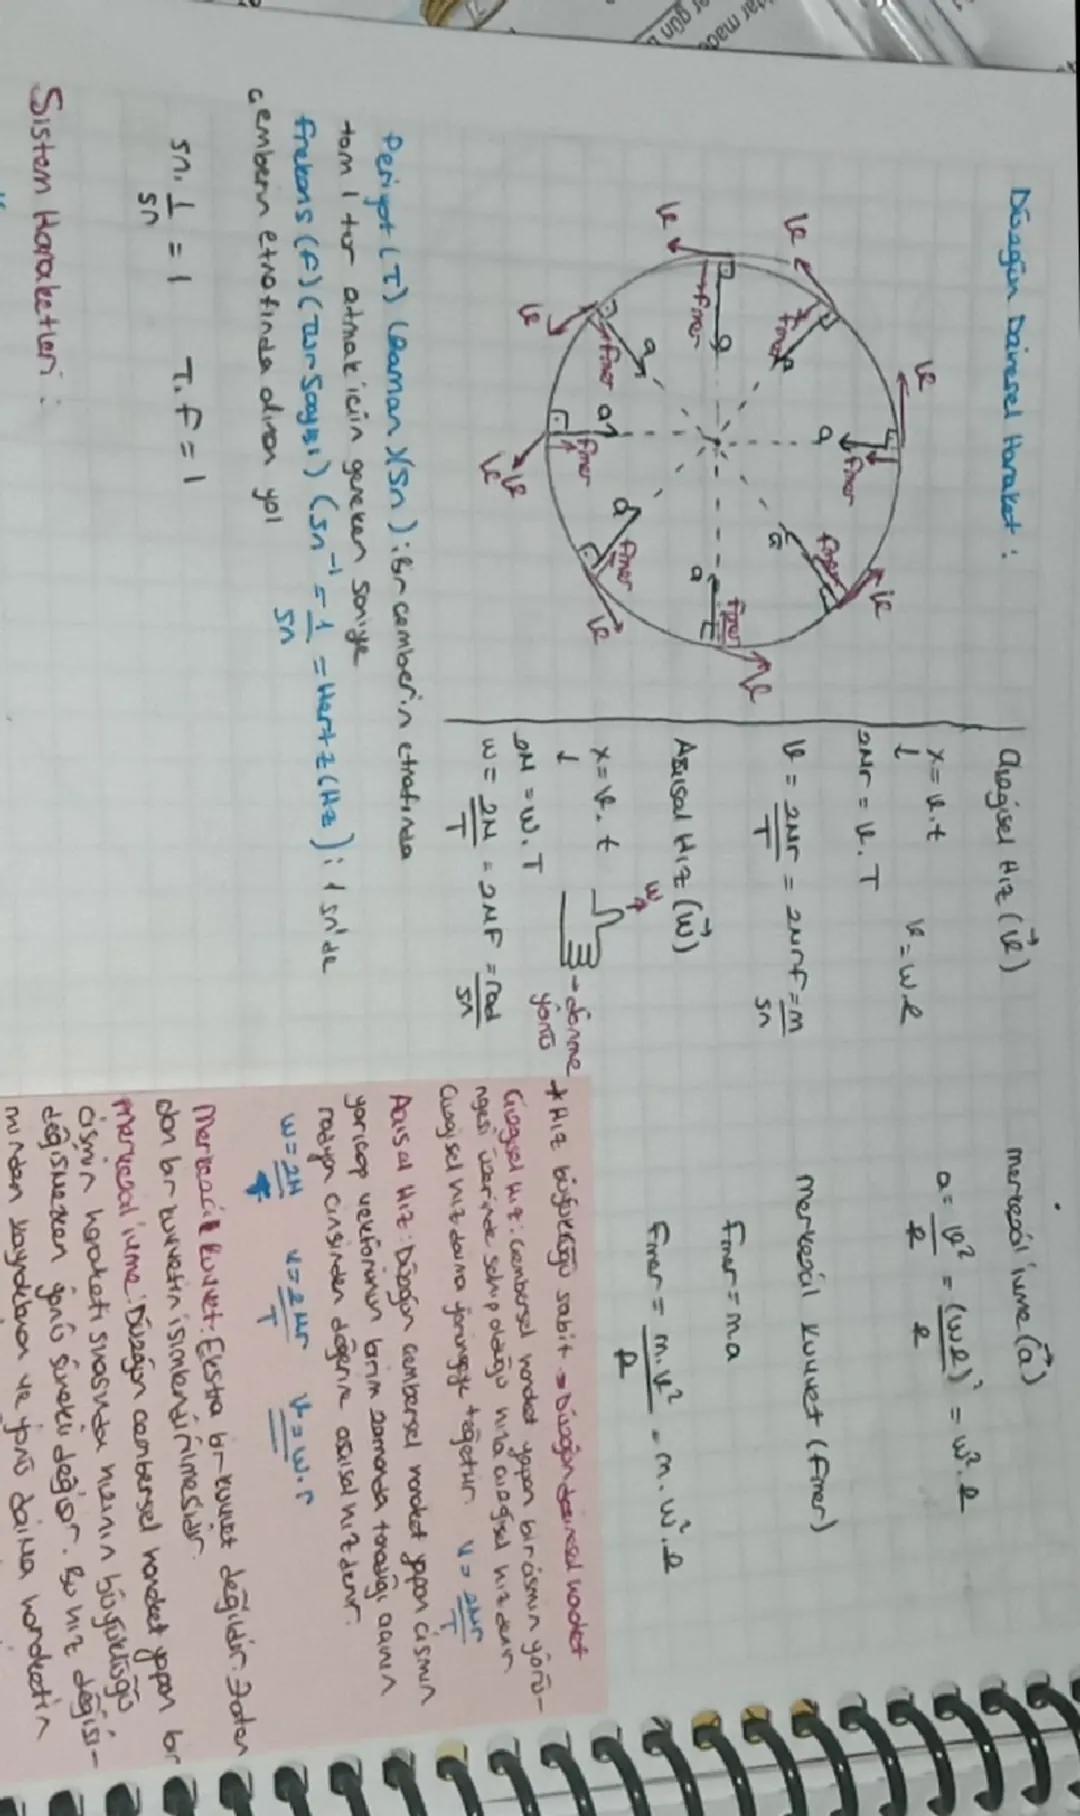 Düzgün Dairesel Haraket :
ϑ
a
fmer
Periyot (T) (zaman)(sn) : Bir çemberin etrafında
tam 1 tur atmak için gereken saniye
frekans (f) (tur sayısı) (sn⁻¹ = 1/sn = Hertz (Hz) : 1 sn'de
çemberin etrafında alınan yol
sn. 1/sn = 1 T.f = 1
Sistem Haraketleri :
Çizgisel Hız (ϑ)
x = ϑ.t
ϑ = wR
2πr = ϑ.T
ϑ = 2πr/T = 2πrf = m/sn
Açısal Hız (w)
w
x = ϑ.t
→ dönme
yönü
2π = w.T
w = 2π/T = 2πF = rad/sn
merkezcil ivme (a)
a = ϑ²/R = (wR)²/R = w².R
merkezcil kuvvet (fmer)
fmer = ma
fmer = m.ϑ²/R = m.w².R
* Hız büyüklüğü sabit → Düzgün dairesel hareket
Çizgisel Hız : Çembersel hareket yapan bir cismin yörü-
ngesi üzerinde sahip olduğu hıza çizgisel hız denir
Çizgisel hız daima yörüngeye teğettir. v = 2πr/T
Açısal Hız : Düzgün çembersel hareket yapan cismin
yarıçap vektörünün birim zamanda taradığı açının
radyan cinsinden değerine açısal hız denir.
w = 2π/T v = 2πr/T v = w.r
Merkezcil Kuvvet : Ekstra bir kuvvet değildir. Zaten
olan bir kuvvetin isimlendirilmesidir.
Merkezcil ivme : Düzgün çembersel hareket yapan bir
cismin hareketi sırasında hızının büyüklüğü
değişmezken yönü sürekli değişir. Bu hız değişi-
minden kaynaklanan ve yönü daima hareketin